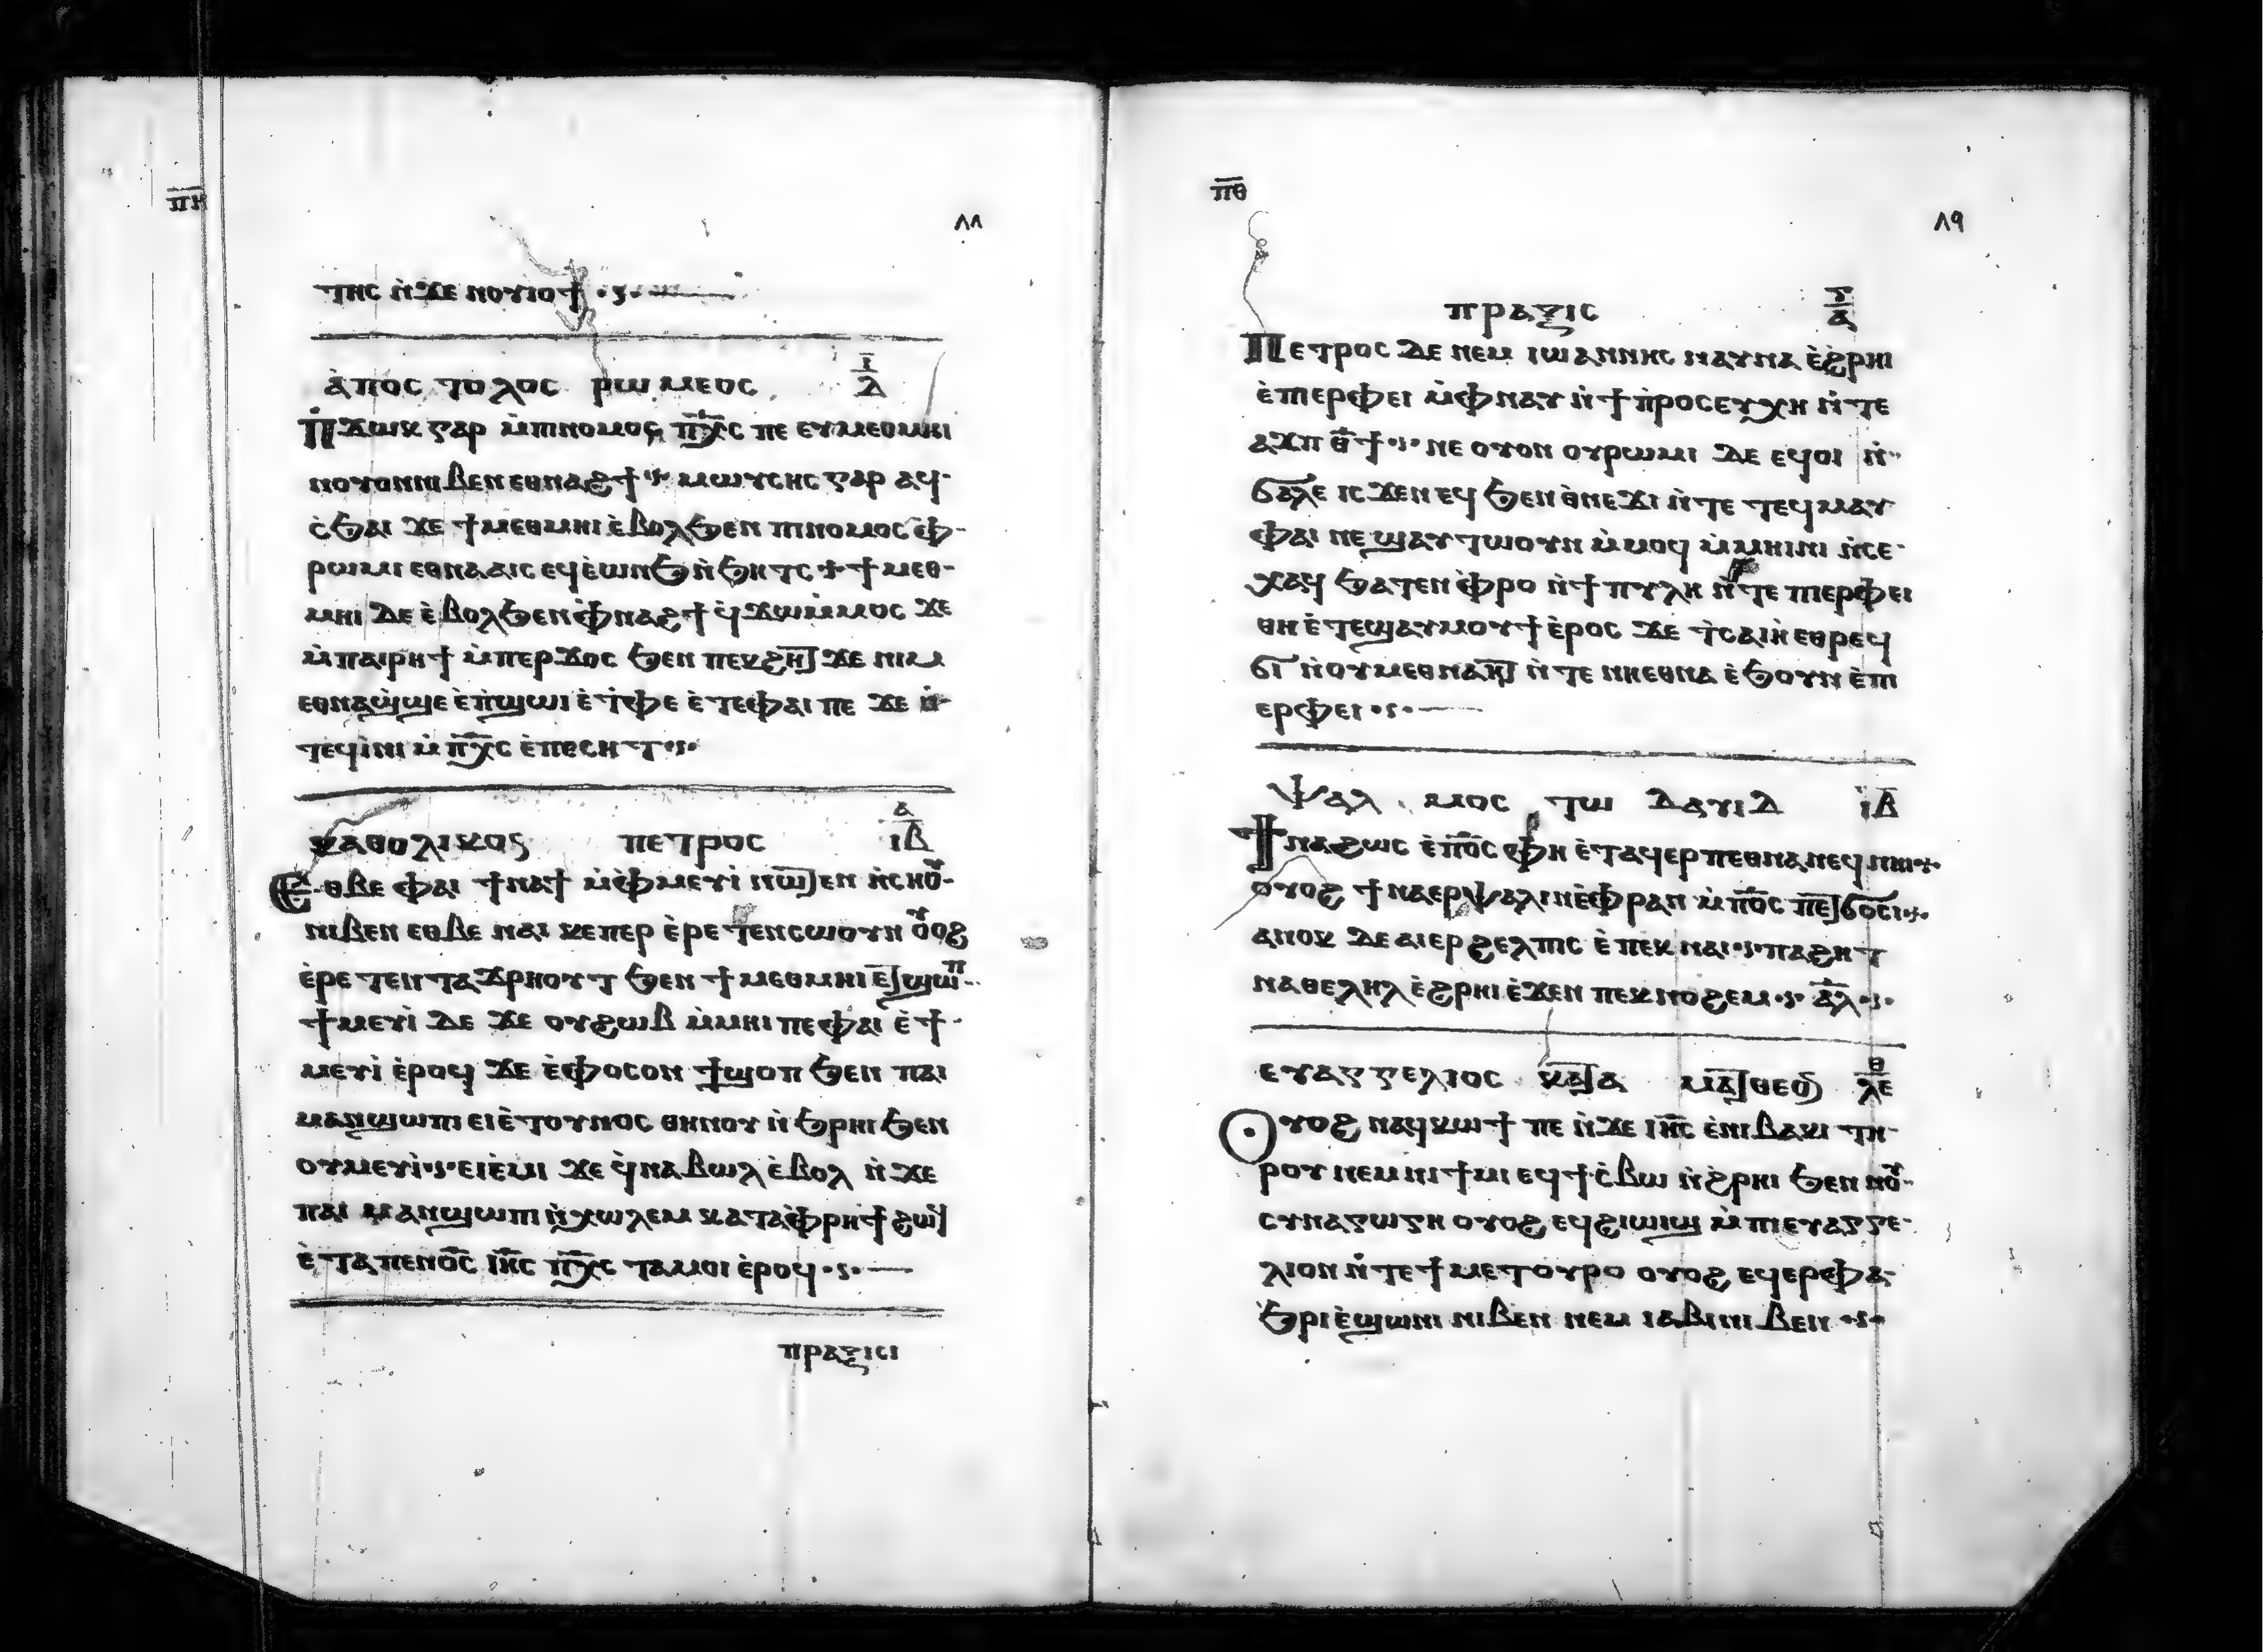 ⲡⲏ
٨٨
ⲧⲏⲥ ⲛ̀ϫⲉ ⲛⲟⲩⲓⲟϯ
ⲁ̀ⲡⲟⲥⲧⲟⲗⲟⲥ ⲣⲱⲙⲉⲟⲥ ⲓ̅ ⲇ
ⲡ̀ϫⲱⲕ ⲅⲁⲣ ⲙ̀ⲡⲓⲛⲟⲙⲟⲥ ⲡⲭ̅ⲥ ⲡⲉ ⲉⲩⲙⲉⲑⲙⲏⲓ
ⲛⲟⲩⲟⲛⲛⲓⲃⲉⲛ ⲉⲑⲛⲁϩϯ ⲙⲱⲩⲥⲏⲥ ⲅⲁⲣ ⲁϥ
ⲥ̀ϧⲁⲓ ϫⲉ ϯⲙⲉⲑⲙⲏⲓ ⲉ̀ⲃⲟⲗϧⲉⲛ ⲡⲓⲛⲟⲙⲟⲥ ⲫ̀
ⲣⲱⲙⲓ ⲉⲑⲛⲁⲁⲓⲥ ⲉϥⲉ̀ⲱⲛϧ ⲛ̀ϧⲏⲧⲥ ϯⲙⲉⲑ
ⲙⲏⲓ ⲇⲉ ⲉ̀ⲃⲟⲗϧⲉⲛ ⲫ̀ⲛⲁϩϯ ϥ̀ϫⲱⲙ̀ⲙⲟⲥ ϫⲉ
ⲙ̀ⲡⲁⲓⲣⲏϯ ⲙ̀ⲡⲉⲣϫⲟⲥ ϧⲉⲛ ⲡⲉⲕϩⲏⲧ ϫⲉ ⲛⲓⲙ
ⲉⲑⲛⲁϣ̀ϣⲉ ⲉ̀ⲡ̀ϣⲱⲓ ⲉ̀ⲧ̀ⲫⲉ ⲉ̀ⲧⲉⲫⲁⲓ ⲡⲉ ϫⲉ ⲛ̀
ⲧⲉϥⲓ̀ⲛⲓ ⲙ̀ⲡⲭ̅ⲥ ⲉ̀ⲡⲉⲥⲏⲧ
ⲕⲁⲑⲟⲗⲓⲕⲟⲥ ⲡⲉⲧⲣⲟⲥ ⲁ ⲓⲃ
ⲉⲑⲃⲉ ⲫⲁⲓ ϯⲛⲁϯ ⲙ̀ⲫ̀ⲙⲉⲩⲓ̀ ⲛⲱⲧⲉⲛ ⲛ̀ⲥⲛⲟⲩ
ⲛⲓⲃⲉⲛ ⲉⲑⲃⲉ ⲛⲁⲓ ⲕⲉⲡⲉⲣ ⲉ̀ⲣⲉⲧⲉⲛⲥⲱⲟⲩⲛ ⲟⲩⲟϩ
ⲉ̀ⲣⲉⲧⲉⲛⲧⲁϫⲣⲏⲟⲩⲧ ϧⲉⲛ ϯⲙⲉⲑⲙⲏⲓ ⲉⲧϣⲱⲡ
ϯⲙⲉⲩⲓ̀ ⲇⲉ ϫⲉ ⲟⲩϩⲱⲃ ⲙ̀ⲙⲏⲓ ⲡⲉ ⲫⲁⲓ ⲉ̀ϯ
ⲙⲉⲩⲓ̀ ⲉ̀ⲣⲟϥ ϫⲉ ⲉ̀ⲫⲟⲥⲟⲛ ϯϣⲟⲡ ϧⲉⲛ ⲡⲁⲓ
ⲙⲁⲛϣⲱⲡⲓ ⲉⲓⲉ̀ⲧⲟⲩⲛⲟⲥ ⲑⲏⲛⲟⲩ ⲛ̀ϧⲣⲏⲓ ϧⲉⲛ
ⲟⲩⲙⲉⲩⲓ̀ ⲉⲓⲉ̀ⲙⲓ ϫⲉ ϥ̀ⲛⲁⲃⲱⲗ ⲉ̀ⲃⲟⲗ ⲛ̀ϫⲉ
ⲡⲁⲓ ⲙⲁⲛϣⲱⲡⲓ ⲛ̀ⲭⲱⲗⲉⲙ ⲕⲁⲧⲁⲫ̀ⲣⲏϯ ϩⲱϥ
ⲉ̀ⲧⲁⲡⲉⲛⲟ̅ⲥ̅ ⲓⲏ̅ⲥ ⲡⲭ̅ⲥ ⲧⲁⲙⲟⲓ ⲉ̀ⲣⲟϥ
ⲡⲣⲁⲝⲓⲥⲓ
ⲡⲑ
٨٩
ⲡⲣⲁⲝⲓⲥ ⲅ̅ ⲁ
ⲡⲉⲧⲣⲟⲥ ⲇⲉ ⲛⲉⲙ ⲓⲱⲁⲛⲛⲏⲥ ⲛⲁⲩⲛⲁ ⲉ̀ϩ̀ⲣⲏⲓ
ⲉ̀ⲡⲓⲉⲣⲫⲉⲓ ⲙ̀ⲫ̀ⲛⲁⲩ ⲛ̀ϯⲡ̀ⲣⲟⲥⲉⲩⲭⲏ ⲛ̀ⲧⲉ
ⲁϫⲡ ⲑ̅ϯ ⲛⲉ ⲟⲩⲟⲛ ⲟⲩⲣⲱⲙⲓ ⲇⲉ ⲉϥⲟⲓ ⲛ̀
ϭⲁⲗⲉ ⲓⲥϫⲉⲛ ⲉϥ ϧⲉⲛ ⲑ̀ⲛⲉϫⲓ ⲛ̀ⲧⲉ ⲧⲉϥⲙⲁⲩ
ⲫⲁⲓ ⲛⲉϣⲁⲩⲧⲱⲟⲩⲛ ⲙ̀ⲙⲟϥ ⲙ̀ⲙⲏⲓⲛⲓ ⲛ̀ⲥⲉ
ⲭⲁϥ ϧⲁⲧⲉⲛ ⲫ̀ⲣⲟ ⲛ̀ϯⲡⲩⲗⲏ ⲛ̀ⲧⲉ ⲡⲓⲉⲣⲫⲉⲓ
ⲑⲏ ⲉ̀ⲧⲉϣⲁⲩⲙⲟⲩϯ ⲉ̀ⲣⲟⲥ ϫⲉ ϯⲥⲁⲓⲏ̀ ⲉⲑⲣⲉϥ
ϭⲓ ⲛ̀ⲟⲩⲙⲉⲑⲛⲁⲏⲧ ⲛ̀ⲧⲉ ⲛⲏⲉⲑⲛⲁ ⲉ̀ϧⲟⲩⲛ ⲉ̀ⲡⲓ
ⲉⲣⲫⲉⲓ
ⲯⲁⲗⲙⲟⲥ ⲧⲱ ⲇⲁⲩⲓⲇ ⲓⲃ
ϯⲛⲁϩⲱⲥ ⲉ̀ⲡⲟ̅ⲥ ⲫⲏ ⲉ̀ⲧⲁϥⲉⲣⲡⲉⲑⲛⲁⲛⲉϥ ⲛⲏⲓ
ⲟⲩⲟϩ ϯⲛⲁⲉⲣⲯⲁⲗⲓⲛ ⲉ̀ⲫ̀ⲣⲁⲛ ⲙ̀ⲡⲟ̅ⲥ ⲡⲉⲧϭⲟⲥⲓ
ⲁⲛⲟⲕ ⲇⲉ ⲁⲓⲉⲣϩⲉⲗⲡⲓⲥ ⲉ̀ⲡⲉⲕⲛⲁⲓ ⲡⲁϩⲏⲧ
ⲛⲁⲑⲉⲗⲏⲗ ⲉ̀ϩ̀ⲣⲏⲓ ⲉ̀ϫⲉⲛ ⲡⲉⲕⲛⲟϩⲉⲙ ⲁ̅ⲗ
ⲉⲩⲁⲅⲅⲉⲗⲓⲟⲥ ⲕⲁⲧⲁ ⲙⲁⲧⲑⲉⲟⲛ ⲑ ⲗⲉ
ⲟⲩⲟϩ ⲛⲁϥⲕⲱϯ ⲡⲉ ⲛ̀ϫⲉ ⲓⲏ̅ⲥ ⲉ̀ⲛⲓⲃⲁⲕⲓ ⲧⲏ
ⲣⲟⲩ ⲛⲉⲙ ⲛⲓϯⲙⲓ ⲉϥϯⲥ̀ⲃⲱ ⲛ̀ϩ̀ⲣⲏⲓ ϧⲉⲛ ⲛⲟⲩ
ⲥⲩⲛⲁⲅⲱⲅⲏ ⲟⲩⲟϩ ⲉϥϩⲓⲱⲓϣ ⲙ̀ⲡⲓⲉⲩⲁⲅⲅⲉ
ⲗⲓⲟⲛ ⲛ̀ⲧⲉϯⲙⲉⲧⲟⲩⲣⲟ ⲟⲩⲟϩ ⲉϥⲉⲣⲫⲁ
ϧⲣⲓ ⲉ̀ϣⲱⲛⲓ ⲛⲓⲃⲉⲛ ⲛⲉⲙ ⲓⲁⲃⲓ ⲛⲓⲃⲉⲛ